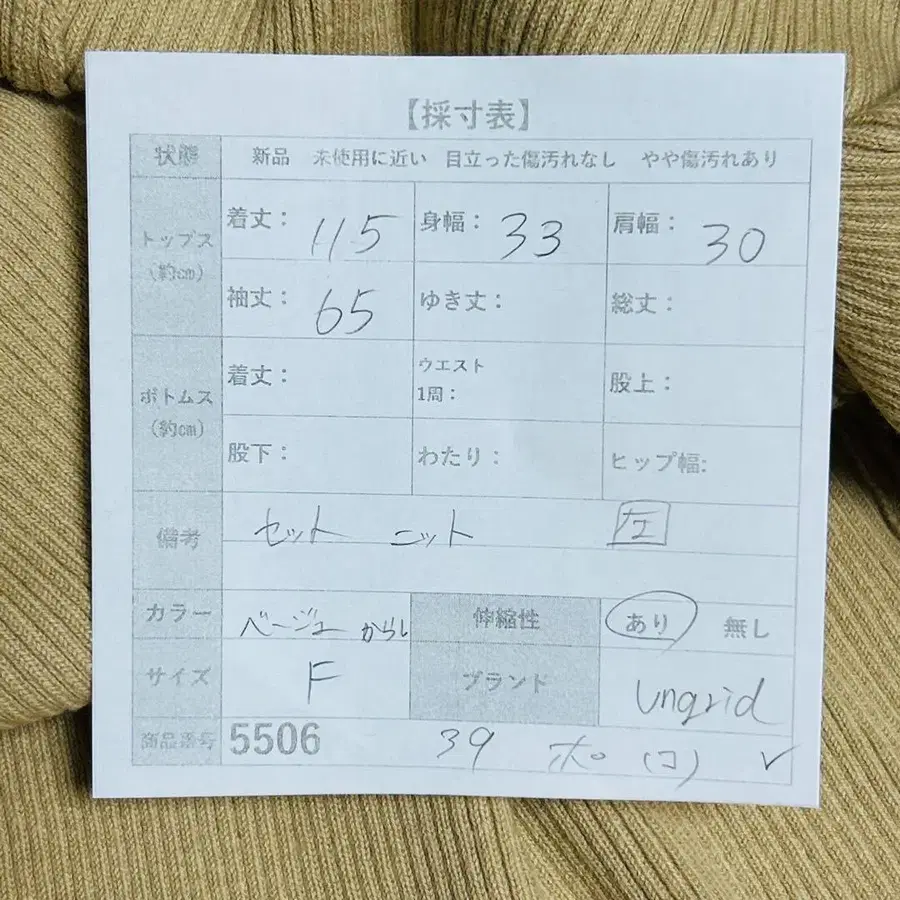 【採寸表】
状態 新品 未使用に近い 目立った傷汚れなし やや傷汚れあり
トップス (約cm)
着丈： 115 身幅： 33 肩幅： 30
袖丈： 65 ゆき丈： 総丈：
ボトムス (約cm)
着丈： ウエスト 1周： 股上：
股下： わたり： ヒップ幅:
備考 セット ニット
カラー ベージュ からし 伸縮性 あり 無し
サイズ F ブランド ungrid
商品番号 5506 39 ホ。 (コ) ✓